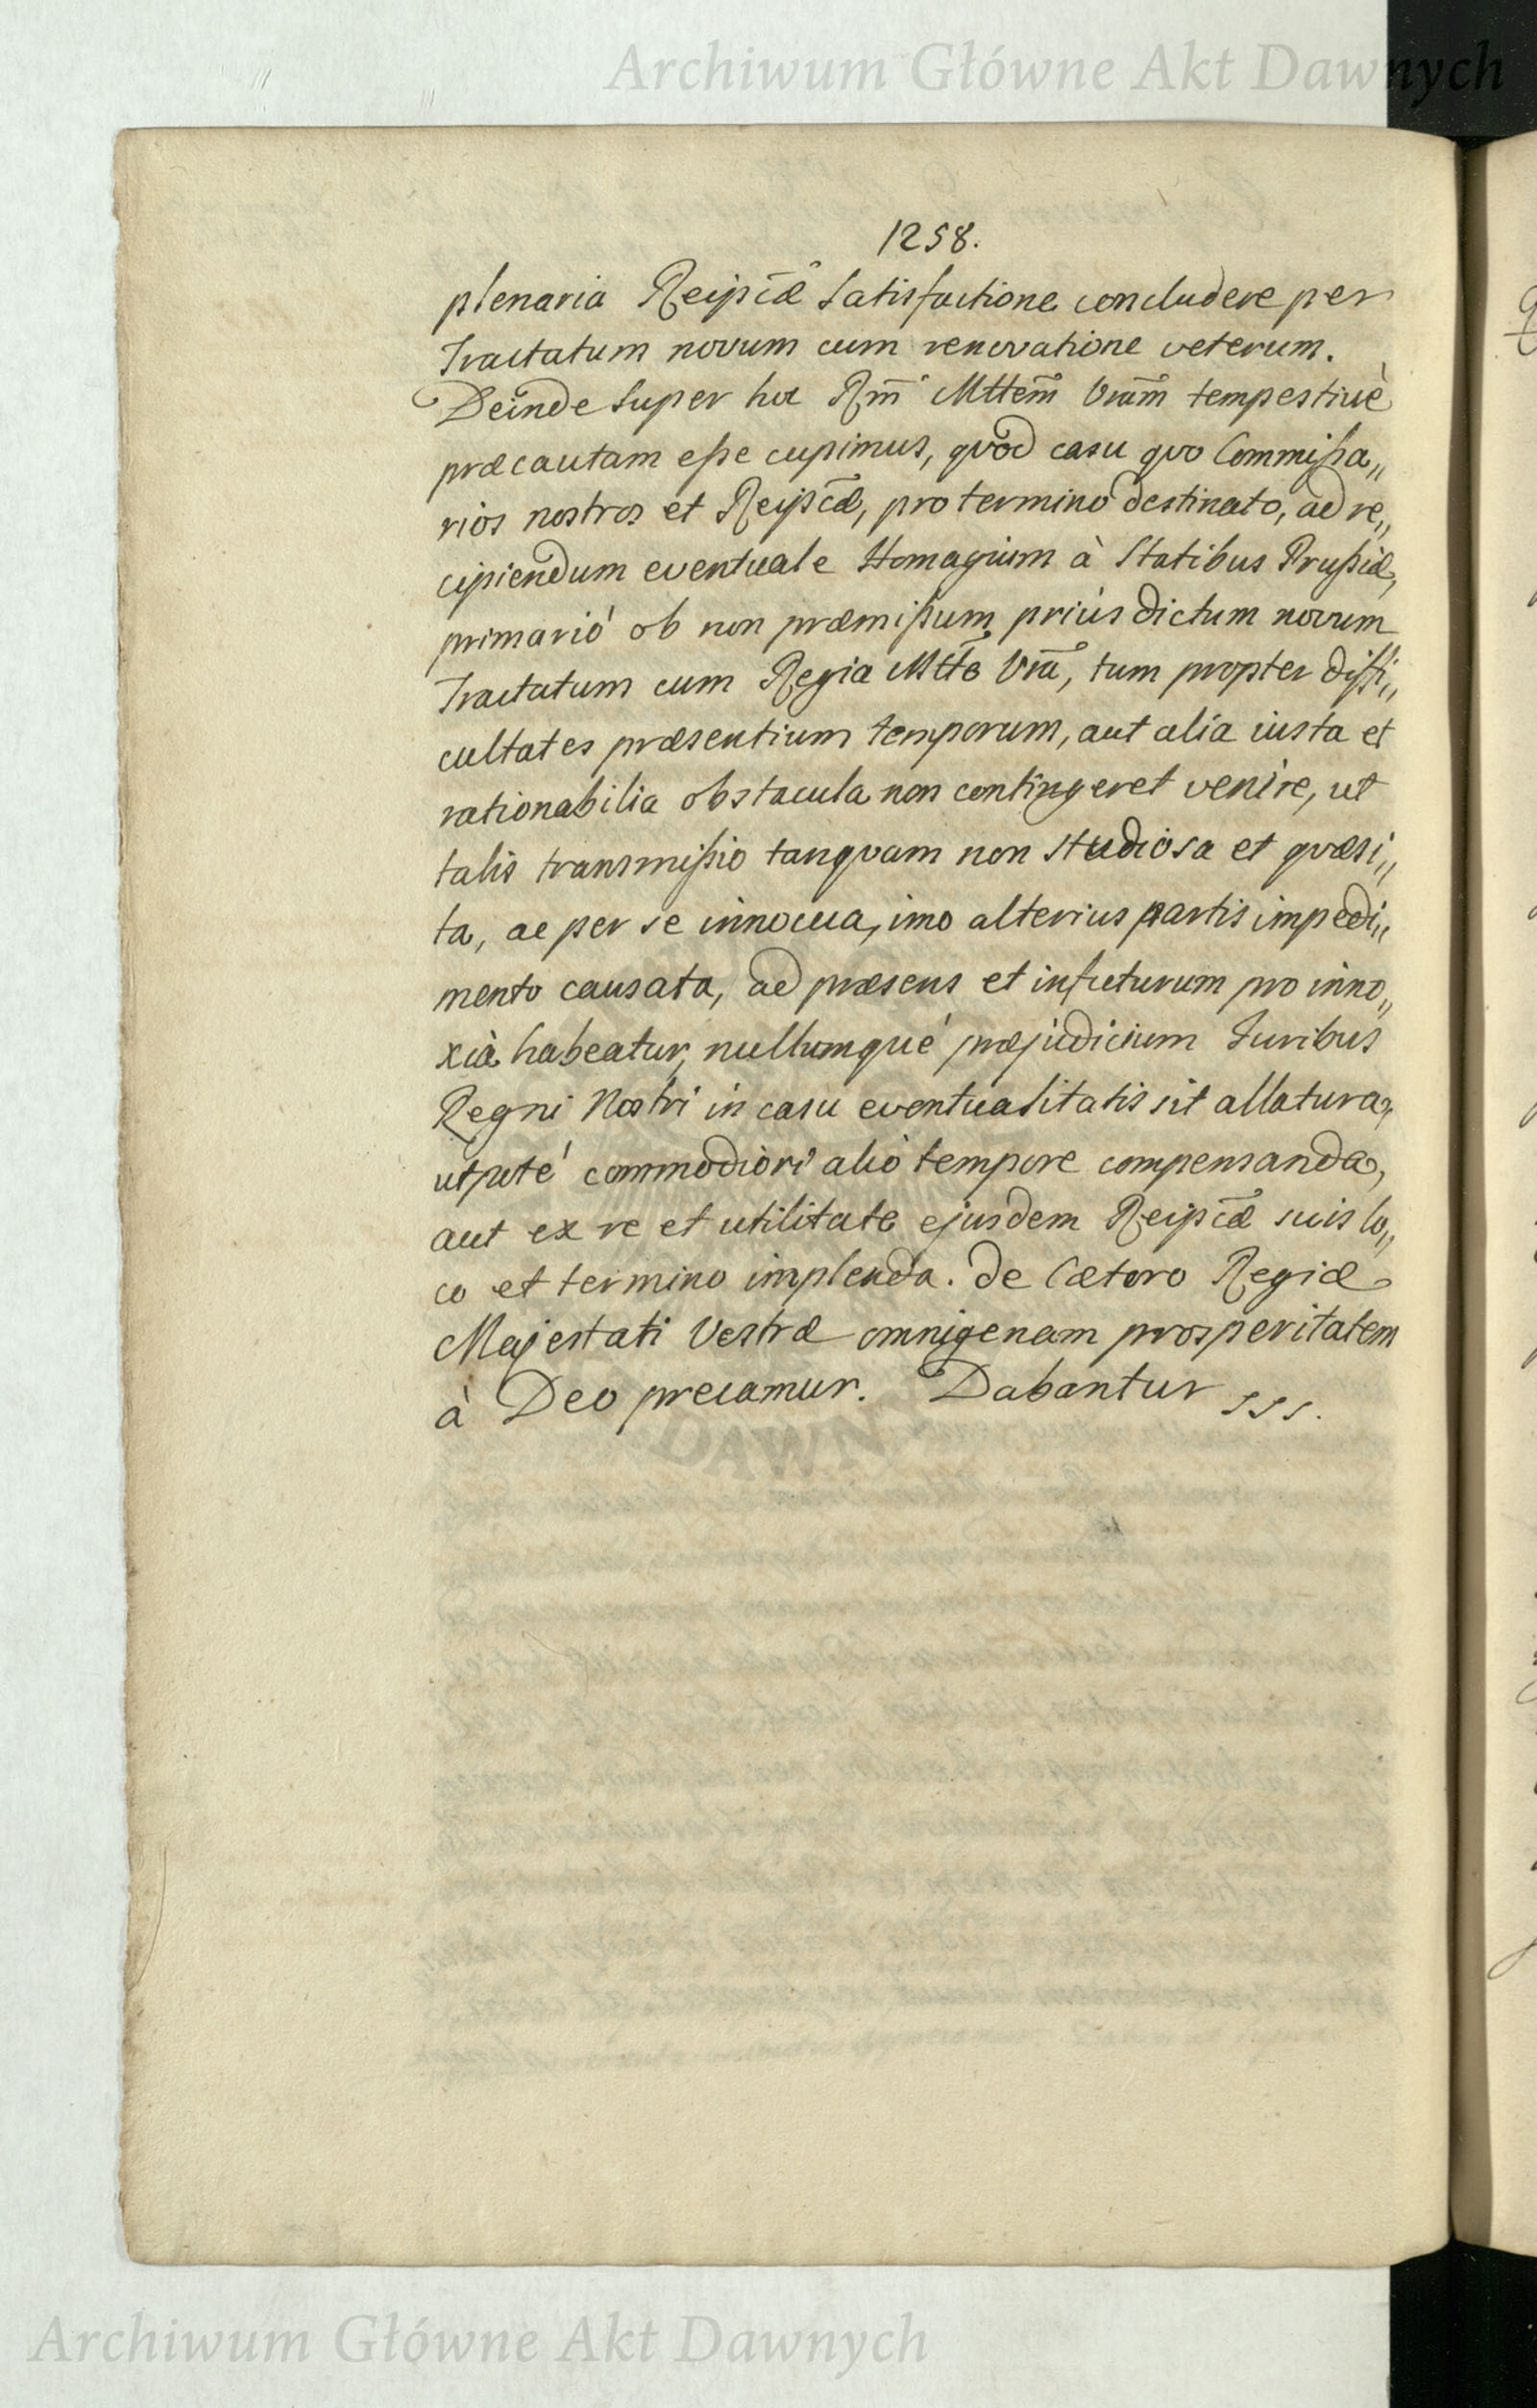 Archiwum Główne Akt Dawnych
1258.
plenaria Reipcæ Satisfactione concludere per
Tractatum novum cum renovatione veterum.
Deinde super hoc Rm̃ Mttem̃ Vram̃ tempestivè
præcautam eße cupimus, quod casu quo Commißa„
rios nostros et Reipcæ, pro termino destinato, ad re„
cipiendum eventuale Homagium à Statibus Prußiæ,
primariò ob non præmißum priùs dictum novum
Tractatum cum Regia Mtte Vrã, tum propter diffi„
cultates præsentium temporum, aut alia iusta et
rationabilia obstacula non contingeret venire, ut
talis transmißio tanquam non studiosa et quæsi„
ta, ac per se innocua, imo alterius partis impedi„
mento causata, ad præsens et in futurum pro inno„
xià habeatur, nullumque præjudicium Iuribus
Regni Nostri in casu eventualitatis sit allatura,
utpote commodiori aliò tempore compensanda,
aut ex re et utilitate ejusdem Reipcæ suis lo„
co et termino implenda. de Cætero Regiæ
Majestati Vestræ omnigenam prosperitatem
à Deo precamur. Dabantur sss.
DAWN
Archiwum Główne Akt Dawnych